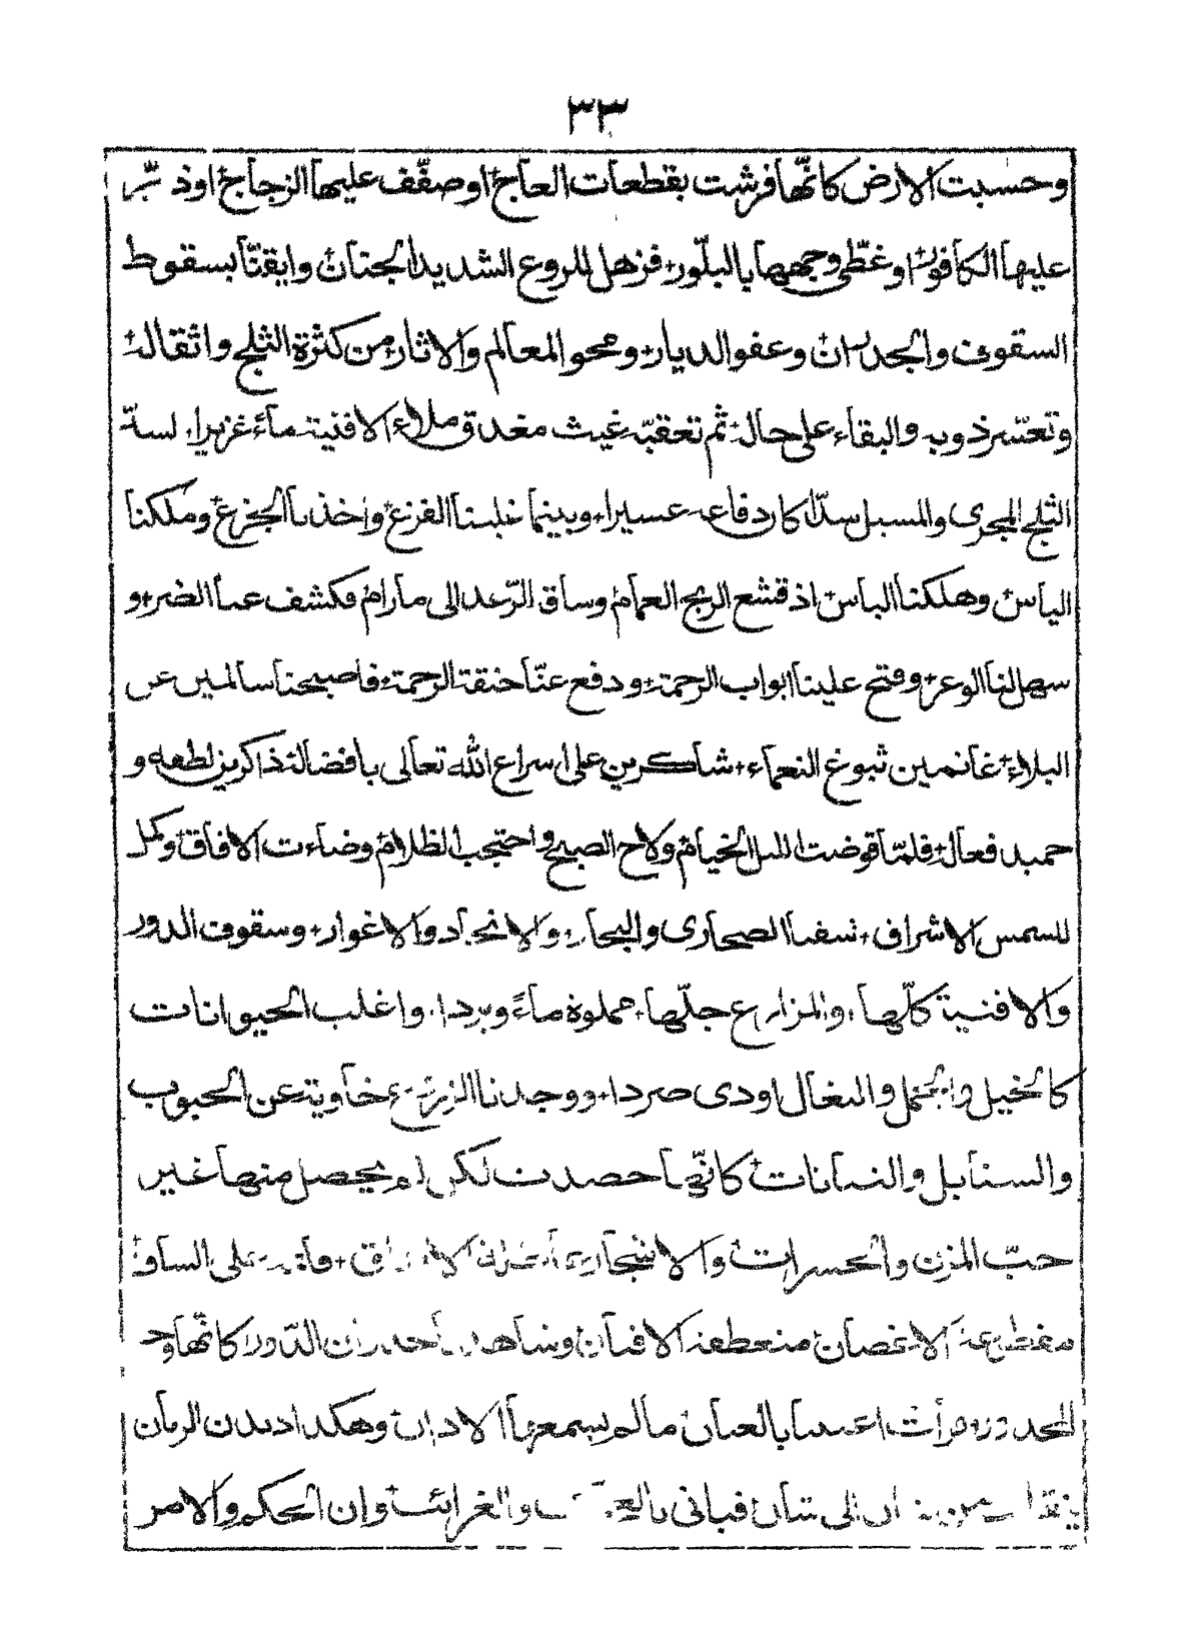 ٣٣
وحسبت الارض كانّها فرشت بقطعات العاج او صفّف عليها الزجاج او ذرّ
عليها الكافور او غطّى وجهها بالبلّور فزهل للروع الشديد الجنان وايقنّا بسقوط
السقوف والجدران وعفو الديار ومحو المعالم والاثار من كثرة الثلج واثقاله
وتعسّر ذوبه والبقاء على حاله ثم تعقبّه غيث مغدق ملاء الافنية ماءً غزيرا لسدّ
الثلج المجرى والمسيل سدّا كان دفاعه عسيرا وبينما غلبنا الفزع واخذنا الجزع وملكنا
الياس وهلكنا الباس اذ قشع الريح الغمام وساق الرّعد الى ما رام فكشف عنا الضر و
سهل لنا الوعر وفتح علينا ابواب الرحمة ودفع عنّا خنقة الزحمة فاصبحنا سالمين عن
البلاء غانمين ثبوغ النعماء شاكرين على اسراع الله تعالى بافضاله ذاكرين لطفه و
حميد فعاله فلمّا قوضت لليل الخيام ولاح الصبح واحتجب الظلام وضاءت الافاق وكمل
للشمس الاشراف نسفنا الصحارى والبحار والانجاد والاغوار وسقوف الدور
والافنية كلّها والمزارع جلّها مملوة ماءً وبردا واغلب الحيوانات
كالخيل والجمل والبغال اودى صردا ووجدنا الزرع خاوية عن الحبوب
والسنابل والنباتات كانّها حصدت لكن لم يحصل منها غير
حبّ المزن والحسرات والاشجار على الساق
الاغصان منعطفة الافنان الدّور كانّها وجـ
بالعيان ما لم يسمعها الاذان وهكذا ديدن الزمان
الى شان فياتى والغرائب وان الحكم والامر